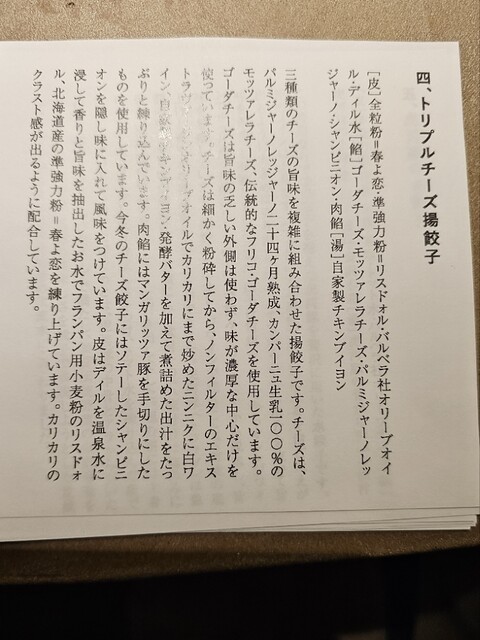 四、トリプルチーズ揚餃子
[皮]全粒粉=春よ恋・準強力粉=リスドォル・バルベラ社オリーブオイ
ル・ディル水[餡]ゴーダチーズ・モッツァレラチーズ・パルミジャーノレッ
ジャーノ・シャンピニオン・肉餡[湯]自家製チキンブイヨン
三種類のチーズの旨味を複雑に組み合わせた揚餃子です。チーズは、
パルミジャーノレッジャーノ二十四ヶ月熟成、カンパーニュ生乳一〇〇%の
モッツァレラチーズ、伝統的なフリコ・ゴーダチーズを使用しています。
ゴーダチーズは旨味の乏しい外側は使わず、味が濃厚な中心だけを
使っています。チーズは細かく粉砕してから、ノンフィルターのエキス
トラヴァージンオリーブオイルでカリカリにまで炒めたニンニクに白ワ
イン、自家製チキンブイヨン・発酵バターを加えて煮詰めた出汁をたっ
ぷりと練り込んでいます。肉餡にはマンガリッツァ豚を手切りにした
ものを使用しています。今冬のチーズ餃子にはソテーしたシャンピニ
オンを隠し味に入れて風味をつけています。皮はディルを温泉水に
浸して香りと旨味を抽出したお水でフランパン用小麦粉のリスドォ
ル、北海道産の準強力粉=春よ恋を練り上げています。カリカリの
クラスト感が出るように配合しています。